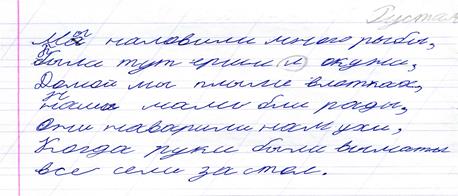 Густан
Мы наловили много рыбы,
были тут ерши и окуни,
Домой мы плыле в летках,
наши мамы бли рады,
Они наварили нам ухи,
Когда руки были выматы
все сели за стол.